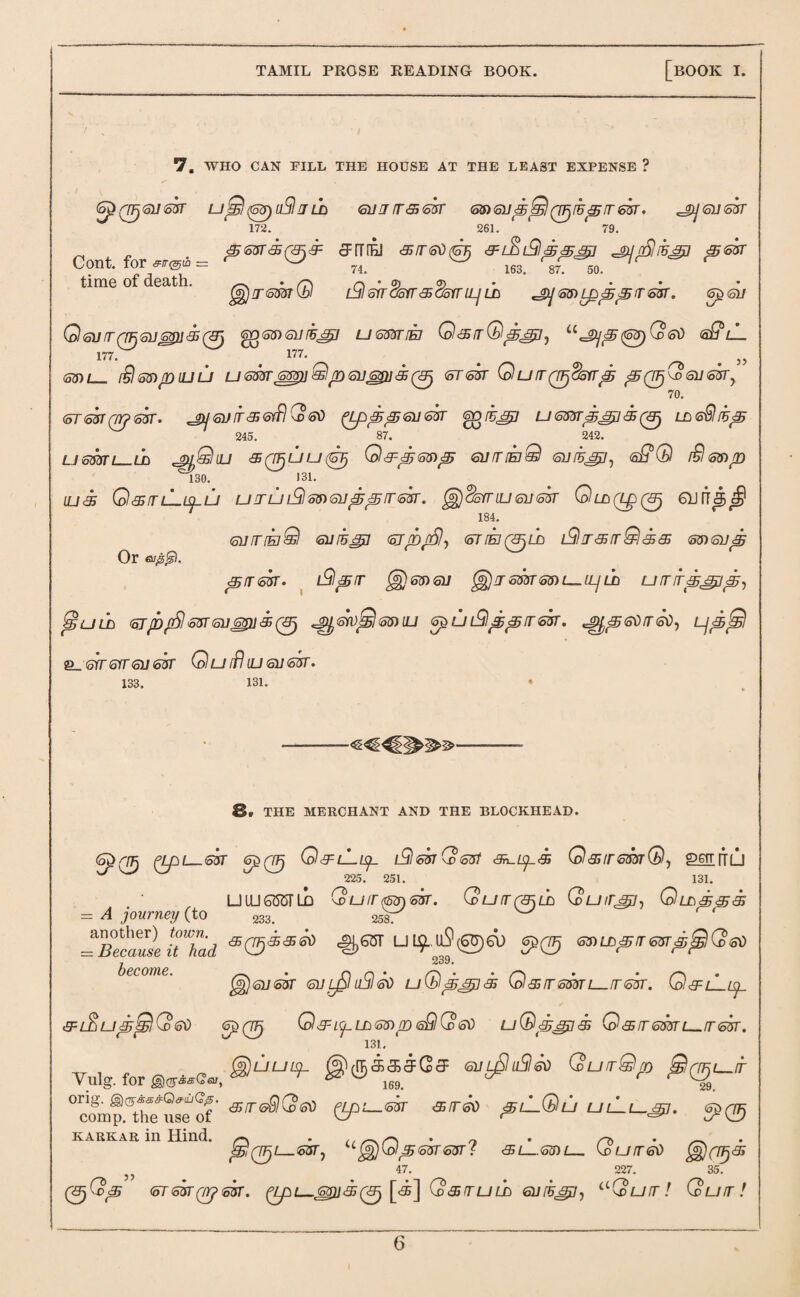 TAMIL PROSE READING BOOK. [BOOK I.
7. WHO CAN FILL THE HOUSE AT THE LEAST EXPENSE ?
ஒருவன் பதிஞயிரம் வராகன் வைத்திருந்தான். அவன்
172. 261. 79.
தனக்குச் சாங் காலஞ் சமீபித்தது அறிந்து தன்
Cont. for சாகும் =
74. 163. 87. 50.
time of death.
இரண்டு பிள்ளைகளையும் அழைத்தான். ஒவ்
வொருவனுக்கு ஐவைந்து பணங் கொடுத்து, “அதஞலே வீட்
177. 177.
டை நிறையப் பணனுவிற்வனுக்கு என் பொருளைத் தருவேன்,”
70.
என்றான். அவர்களிலே மூத்தவன் ஐந்து பணத்துக்கு மலிந்த
245. 87. 242.
பண்டம் ஆகிய கருப்பஞ் செத்தை வாங்கி வந்து, வீடு நிறை
130. 131.
யக் கொட்டிப் பரப்பிவைத்தான். இளையவன் மெழுகு வர்த்தி
184.
வாங்கி வந்து ஏற்றி, எங்கும் பிரகாசிக்க வைத்
Or வத்தி.
தான். பிதா இவை இரண்டையும் பார்த்துத்,
தீபம் ஏற்றினவனுக்கு ஆஸ்தியை ஒப்பித்தான். ஆதலால், புத்தி
உள்ளவன் பெரியவன்.
133. 131.
8. THE MERCHANT AND THE BLOCKHEAD.
ஒரு மூடன் ஒரு செட்டி பின்னே கூடிக் கொண்டு, ஊர்ப்
225. 251. 131.
பயணம் போஞன். போகும் போது, மெத்தக்
= A journey (to
233. 258.
another) town.
கருக்கல் ஆன படியிஞல் ஒரு மைதானத்திலே
= Because it had
239.
become.
இவன் வழியில் படுத்துக் கொண்டான். செட்டி
சமீபத்திலே ஒரு செடி மறைவிலே படுத்துக் கொண்டான்.
131.
இப்படி இருக்கச்சே வழியில் போகிற திருடர்
Vulg. for இருக்கவே,
169. 29.
orig. இருக்கச்செய்தே.
காலிலே மூடன் கால் தட்டுப் பட்டது. ஒரு
comp. the use of
KARKAR in Hind.
திருடன், “இதென்ன? கட்டை போல் இருக்
47. 227. 35.
குதே” என்றான். மூடனுக்கு [க்] கோபம் வந்து, “போ! போ!
6